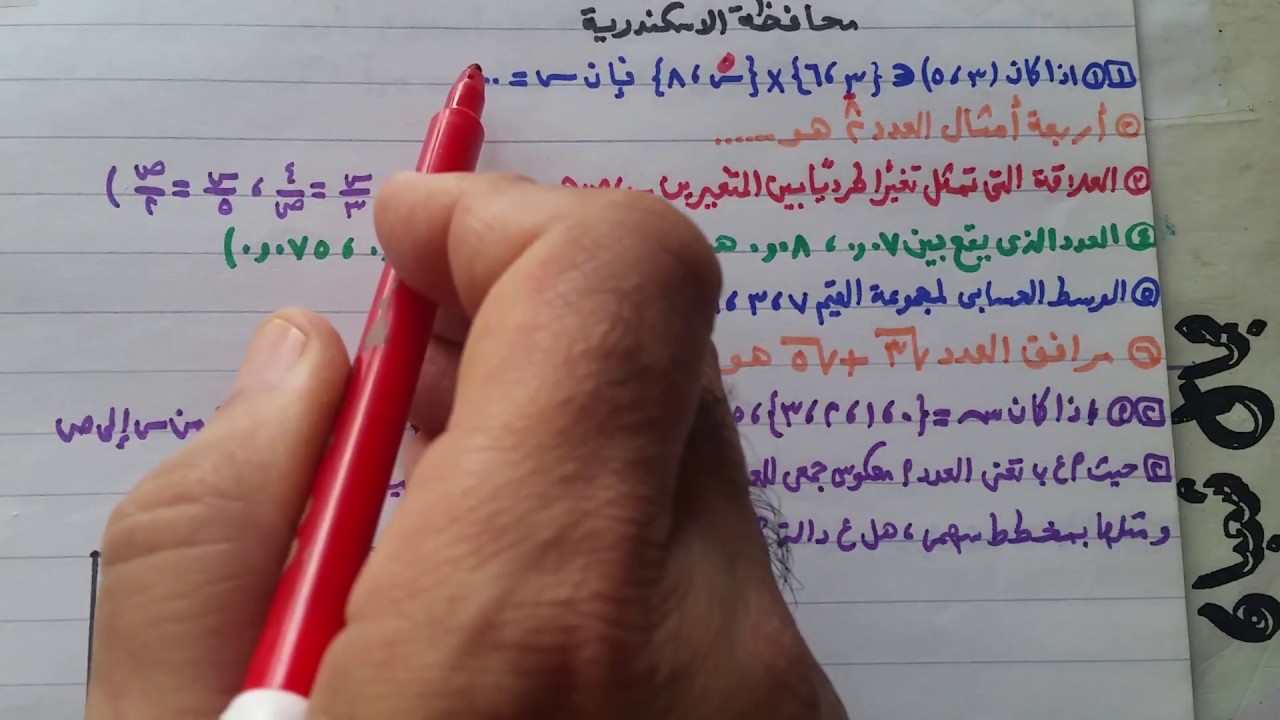 محافظة الاسكندرية
١ ① اذا كان (٣، ٥) ∈ {٣، ٦} × {س، ٨} فإن س = ..
② أربعة أمثال العدد ٢٨ هو ......
③ العلاقة التى تمثل تغيرًا طرديًا بين المتغيرين س، ص س/٣ = ٤/ص ، س/٥ = ص/٢ )
④ العدد الذى يقع بين ٠,٠٧ ، ٠,٠٨ ٠,٠٧٥ )
⑤ الوسط الحسابى لمجموعة القيم ٧، ٣،
⑥ مرافق العدد √٣ + √٥ هو
② ① اذا كان س = {٠، ١، ٢، ٣} من س إلى ص
حيث أ ع ب تعنى العدد أ معكوس جمعى
و مثلها بمخطط سهمى، هل ع دالة